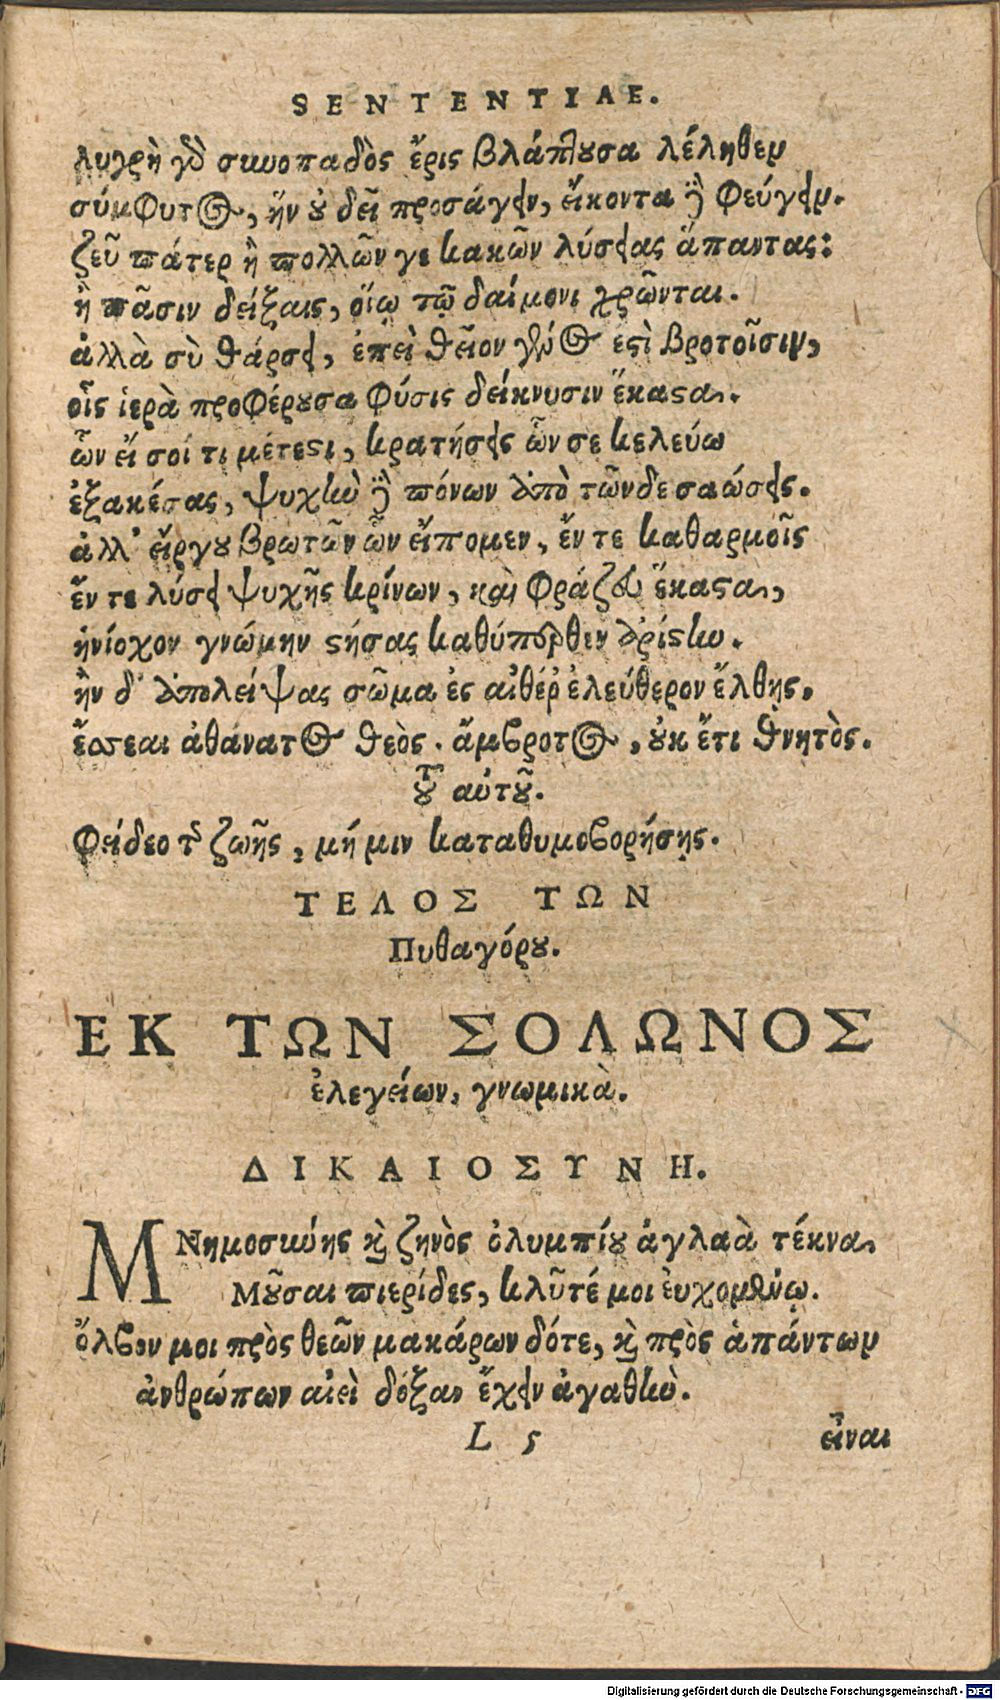 SENTENTIAE.
λυγρὴ γὰρ συνοπαδὸς ἔρις βλάπτουσα λέληθεν
σύμφυτος, ἥν οὐ δεῖ προσάγειν, εἴκοντα δὲ φεύγειν.
ζεῦ πάτερ ἢ πολλῶν γε κακῶν λύσειας ἅπαντας:
ἢ πᾶσιν δείξαις, οἵῳ τῷ δαίμονι χρῶνται.
ἀλλὰ σὺ θάρσει, ἐπεὶ θεῖον γένος ἐστὶ βροτοῖσιν,
οἷς ἱερὰ προφέρουσα φύσις δείκνυσιν ἕκαστα.
ὧν εἴ σοί τι μέτεστι, κρατήσεις ὧν σε κελεύω
ἐξακέσας, ψυχὴν δὲ πόνων ἀπὸ τῶνδε σαώσεις.
ἀλλ' εἴργου βρωτῶν ὧν εἴπομεν, ἔν τε καθαρμοῖς
ἔν τε λύσει ψυχῆς κρίνων, καὶ φράζευ ἕκαστα,
ἡνίοχον γνώμην στήσας καθύπερθεν ἀρίστην.
ἢν δ' ἀπολείψας σῶμα ἐς αἰθέρ' ἐλεύθερον ἔλθῃς,
ἔσσεαι ἀθάνατος θεὸς. ἄμβροτος, οὐκ ἔτι θνητὸς.
Τοῦ αὐτοῦ.
Φείδεο τῆς ζωῆς, μή μιν καταθυμοβορήσῃς.
ΤΕΛΟΣ ΤΩΝ
Πυθαγόρου.
ΕΚ ΤΩΝ ΣΟΛΩΝΟΣ
ἐλεγείων, γνωμικὰ.
ΔΙΚΑΙΟΣΥΝΗ.
ΜΝημοσύνης καὶ ζηνὸς ὀλυμπίου ἀγλαὰ τέκνα,
Μοῦσαι πιερίδες, κλῦτέ μοι ἐυχομένῳ.
ὄλβον μοι πρὸς θεῶν μακάρων δότε, καὶ πρὸς ἁπάντων
ἀνθρώπων αἰεὶ δόξαν ἔχειν ἀγαθὴν.
L 5 εἶναι
Digitalisierung gefördert durch die Deutsche Forschungsgemeinschaft - DFG